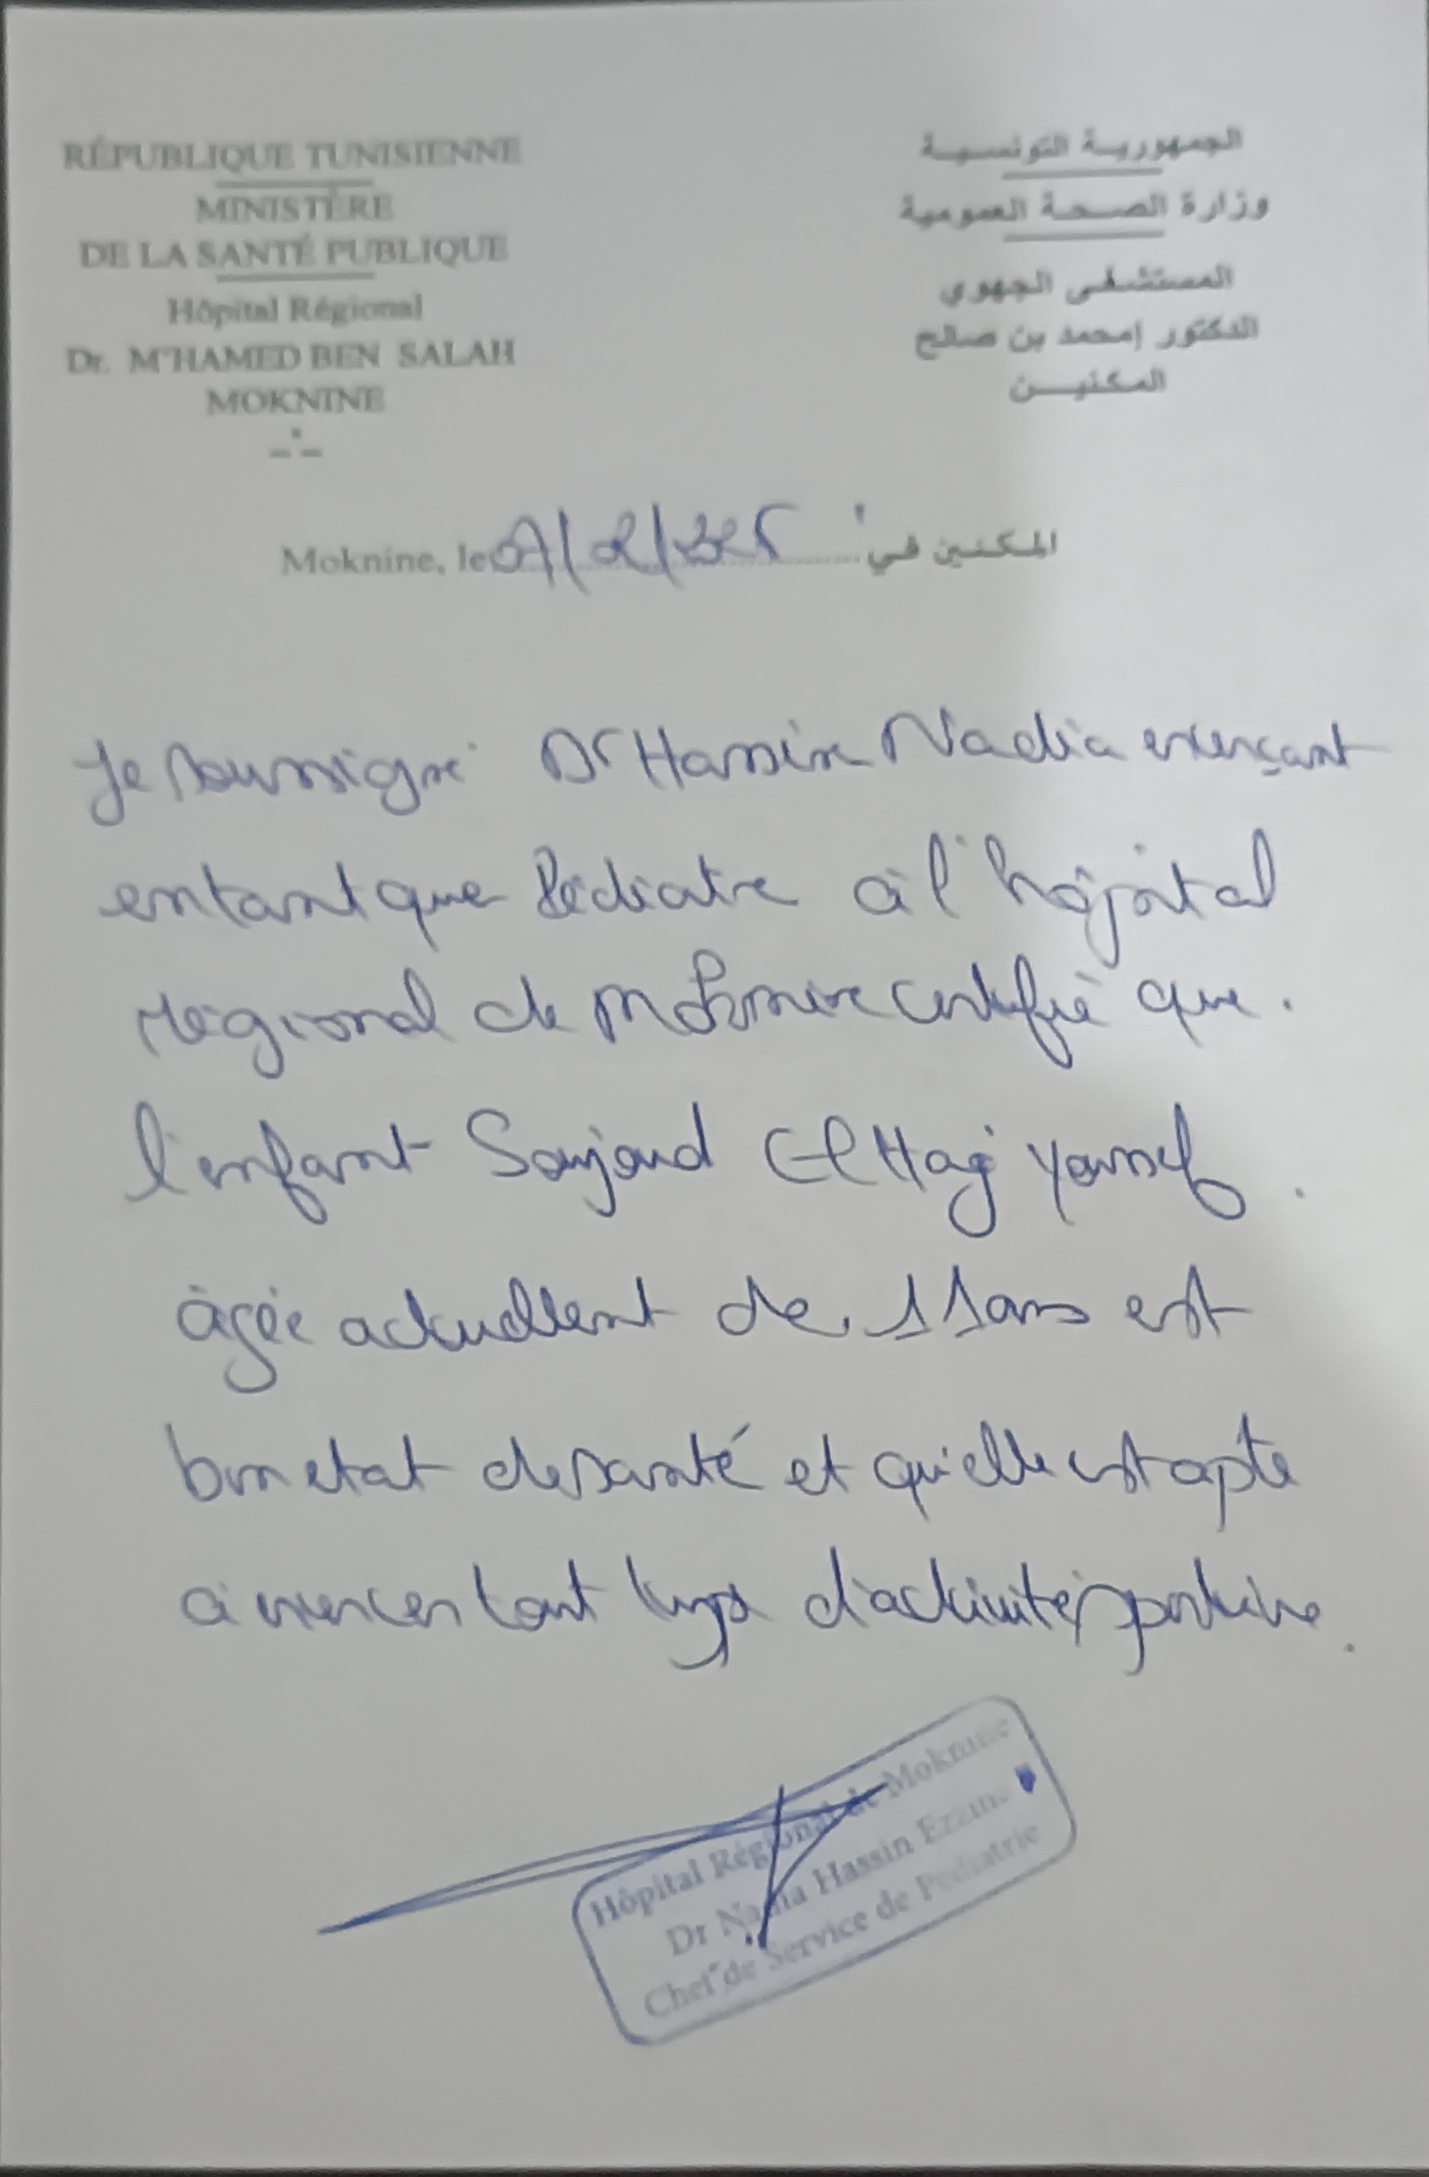 RÉPUBLIQUE TUNISIENNE
MINISTÈRE
DE LA SANTÉ PUBLIQUE
Hôpital Régional
Dr. M'HAMED BEN SALAH
MOKNINE
الجمهورية التونسية
وزارة الصحة العمومية
المستشفى الجهوي
الدكتور إمحمد بن صالح
المكنين
Moknine, le المكنين في
Je soussigné Dr Hassin Nadia exerçant
entant que Pédiatre à l'hôpital
régional de Moknine certifié que.
l'enfant El Haj Youssef.
âgée actuellent de 11 ans est
bon etat de santé et qu'elle est apte
a exercer tout type d'activité sportive.
Hôpital Régional de Moknine
Dr Nadia Hassin
Chef de Service de Pédiatrie